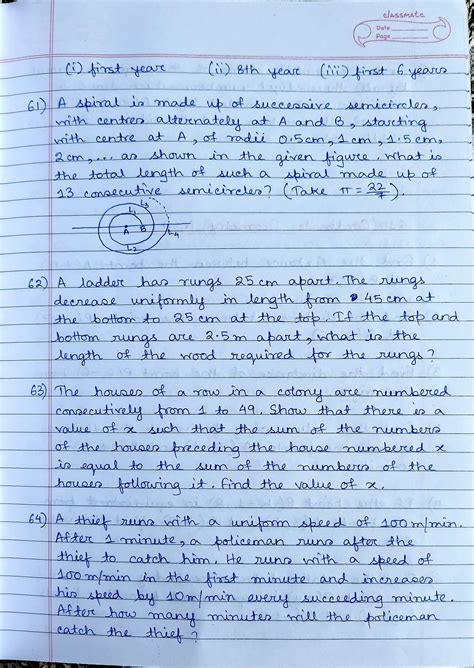 classmate
Date
Page
(i) first year (ii) 8th year (iii) first 6 years
61) A spiral is made up of successive semicircles,
with centres alternately at A and B, starting
with centre at A, of radii 0.5cm, 1cm, 1.5cm,
2cm,... as shown in the given figure. What is
the total length of such a spiral made up of
13 consecutive semicircles? (Take π = 22/7).
L3
L1
A B
L4
L2
62) A ladder has rungs 25cm apart. The rungs
decrease uniformly in length from 45cm at
the bottom to 25cm at the top. If the top and
bottom rungs are 2.5m apart, what is the
length of the wood required for the rungs?
63) The houses of a row in a colony are numbered
consecutively from 1 to 49. Show that there is a
value of x such that the sum of the numbers
of the houses preceding the house numbered x
is equal to the sum of the numbers of the
houses following it. Find the value of x.
64) A thief runs with a uniform speed of 100m/min.
After 1 minute, a policeman runs after the
thief to catch him. He runs with a speed of
100m/min in the first minute and increases
his speed by 10m/min every succeeding minute.
After how many minutes will the policeman
catch the thief?